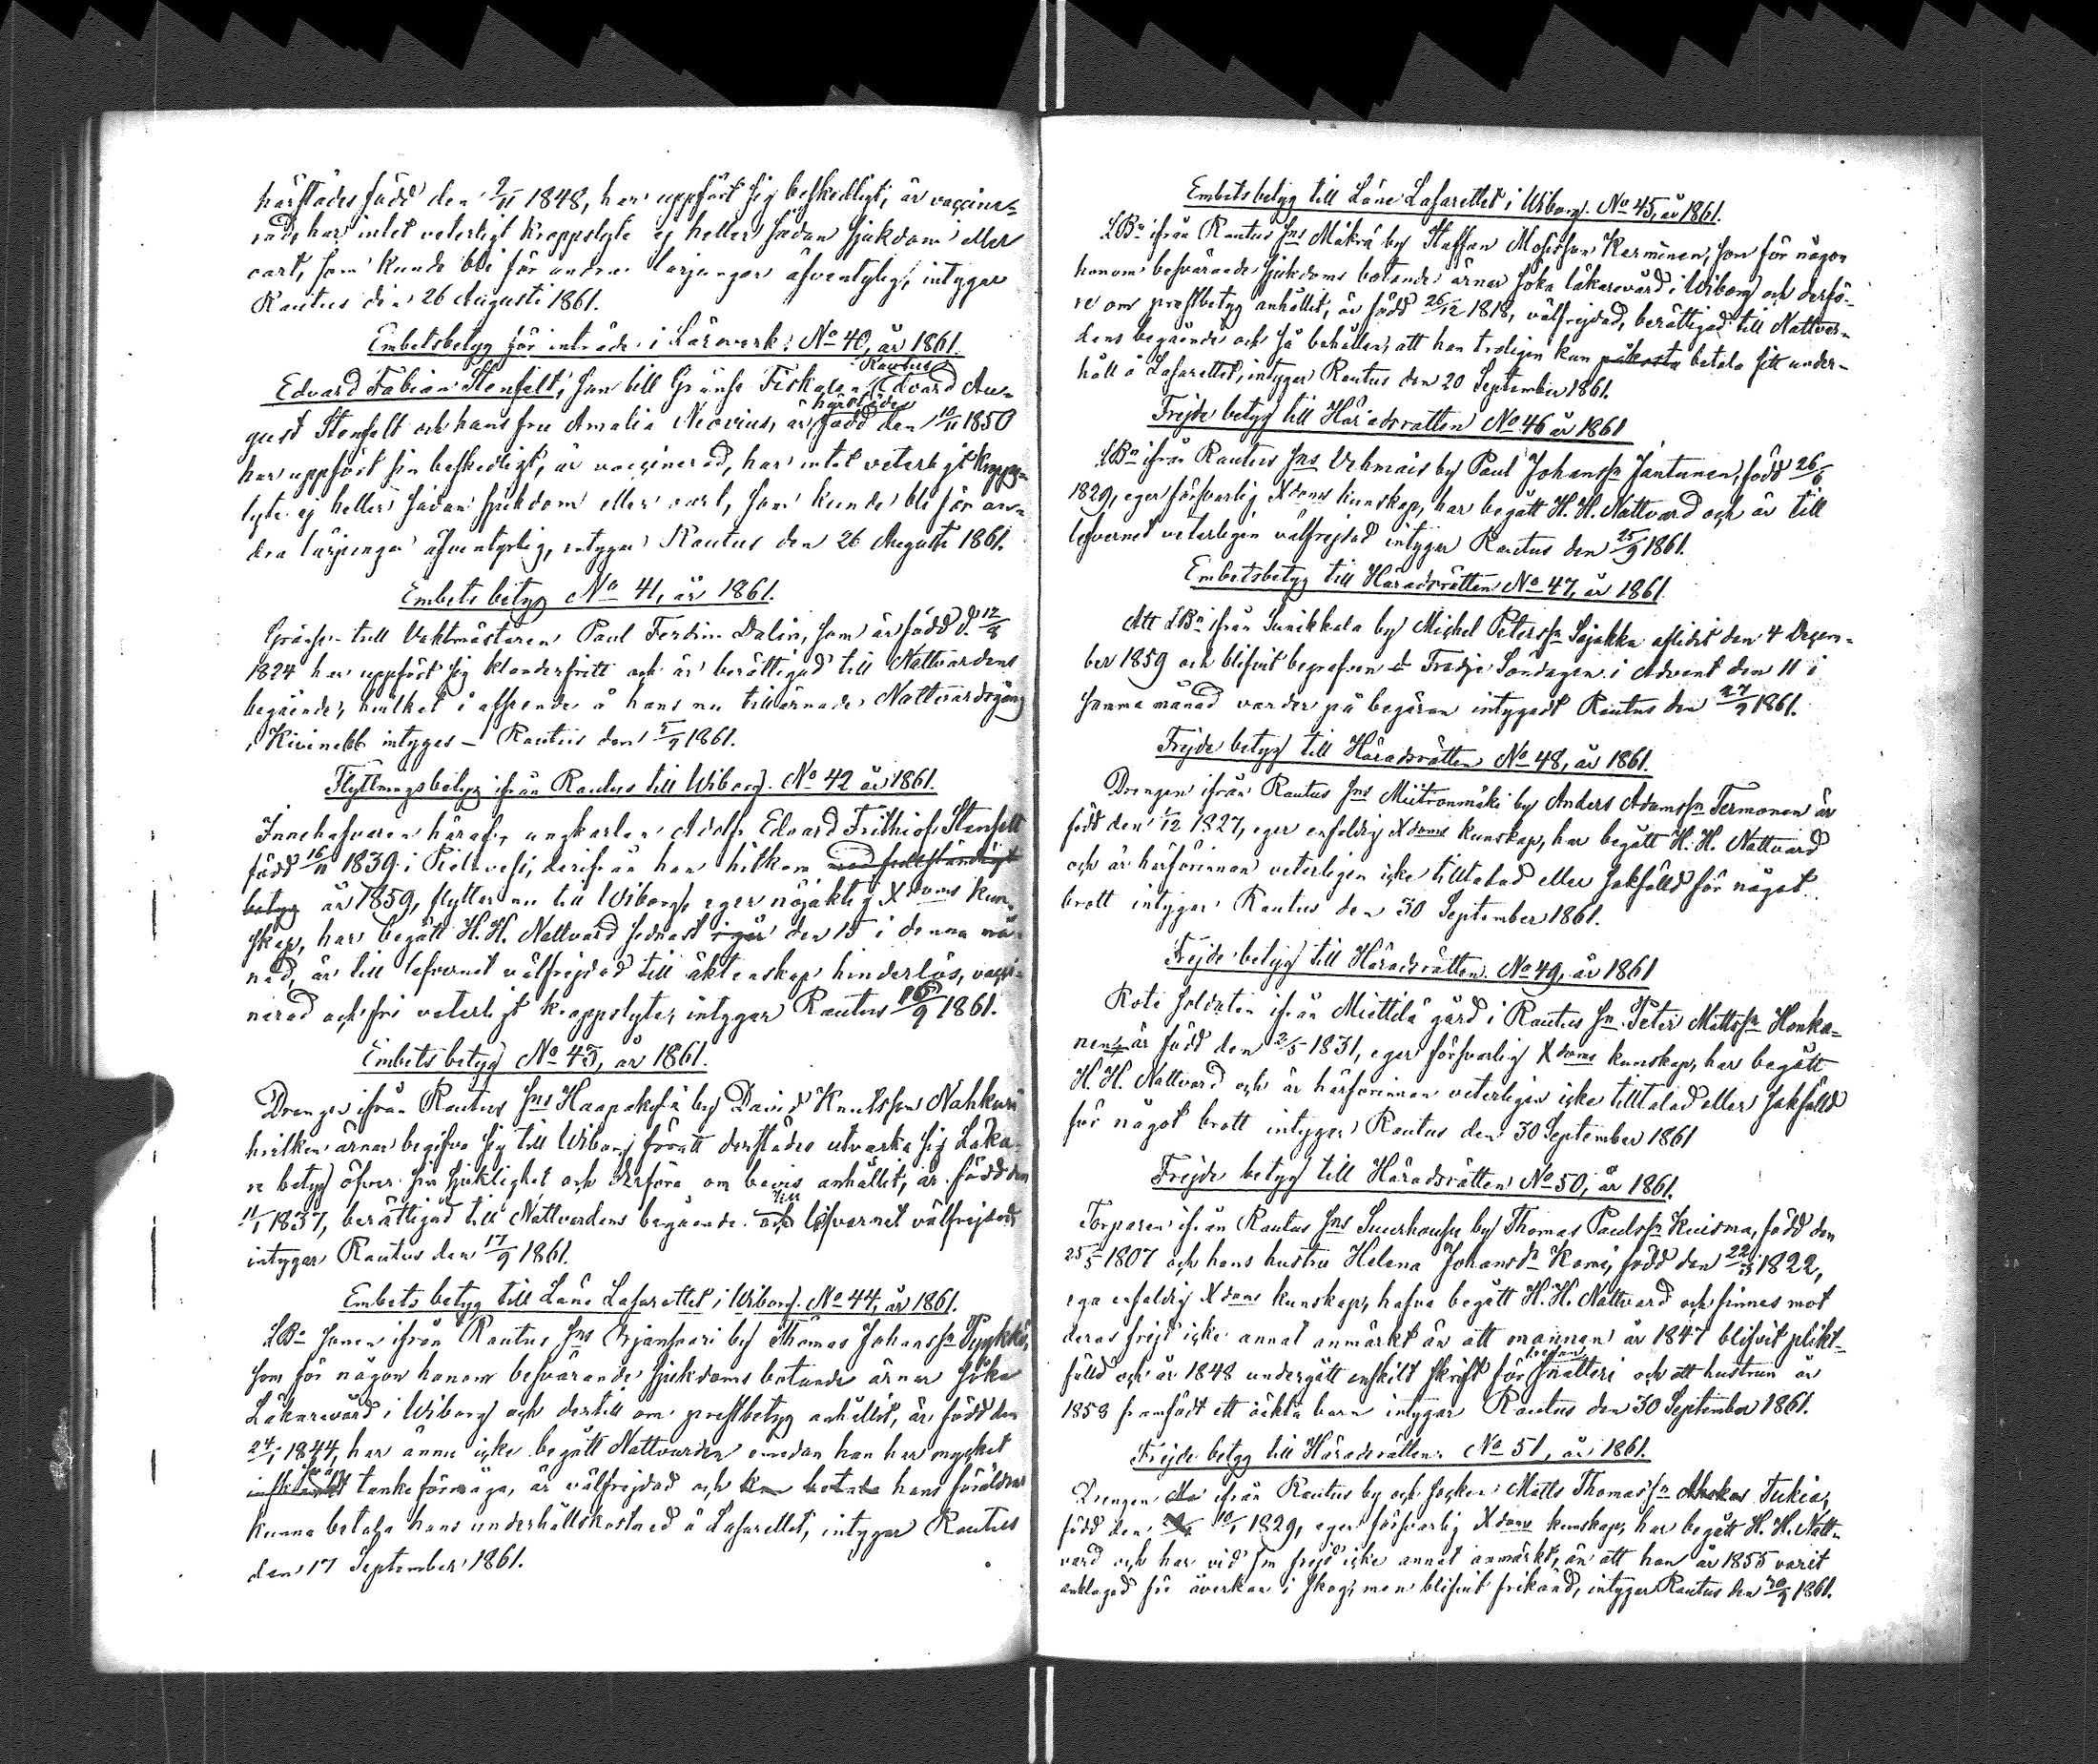 härstädes född den 9/11 1848, har uppfört sig beskedligt, är vaccine-
rad, har intet veterligt kroppslyte ej heller sådan sjukdom eller
art, som kunde bli för andra lärjungar äfventylig, intygar
Rautus den 26 Augusti 1861.
Embetsbetyg för inträde i Lärowerk. No 40, år 1861.
Rautus
Edvard Fabian Stenfelt, son till Gränse Fiskalen Edvard Au-
härstädes
gust Stenfelt och hans fru Amalia Neovius, är född den 10/11 1850
har uppfört sig beskedligt, är vaccinerad, har intet veterligt kropps-
lyte ej heller sådan sjukdom eller art, som kunde bli för an-
dra lärjungar äfventyrlig, intygar Rautus den 26 Augusti 1861.
Embets betyg No 41, år 1861.
Gränse tull Vaktmästaren Paul Ferdin. Dalin, som är född d. 12/8
1824 har uppfört sig klanderfritt och är berättigad till Nattvardens
begående, hvilket i afseende å hans nu tillärnade Nattvardsgång
i Kivinebb intyges – Rautus den 5/9 1861.
Flyttningsbetyg ifrån Rautus till Wiborg. No 42 år 1861.
Innehafvaren häraf, ungkarlen Adolf Edvard Frithiof Stenfelt
född 16/11 1839 i Pielavesi, derifrån han hitkom med fullständigt
betyg år 1859, flyttar nu till Wiborg, eger nöjaktig Xdoms kun-
skap, har begått H. H. Nattvard sednast i går den 15 i denna må-
nad, är till lefvernet välfrejdad till äktenskap hinderlös, vacci-
nerad och fri veterligt kroppslyte, intygar Rautus 16/9 1861.
Embets betyg No 43, år 1861.
Drengen ifrån Rautus Sns Haapakylä by David Knutsson Nahkuri
hvilken ärnar begifva sig till Wiborg föratt derstädes utverka sig Läka-
re betyg öfver sin sjuklighet och derföre om bevis anhållit, är född den
till
11/1 1837, berättigad till Nattvardens begående och lefvernet välfrejdad
intygar Rautus den 17/9 1861.
Embets betyg till Läne Lasarettet i Wiborg. No 44, år 1861.
LBn Sonen ifrån Rautus Sns Orjansaari by Thomas Johanssn Pyykkö,
som för någon honom besvärande sjukdoms botande ärnar söka
Läkarevård i Wiborg och dertill om prestbetyg anhållit, är född den
24/1 1844, har ännu icke begått Nattvarden emedan han har mycket
tankeförmåga, är välfrejdad och kan betala hans föräldrar
kunna betala hans underhållskostnad å Lasarettet, intygar Rautus
den 17 September 1861.
Embetsbetyg till Läne Lasarettet i Wiborg. No 45, år 1861.
LBn ifrån Rautus Sns Mäkrä by Staffan Mosisson Karminen, som för någon
honom besvärande sjukdoms botande ärnar söka läkarevård i Wiborg och derfö-
re om prestbetyg anhållit, är född 26/12 1818, välfrejdad, berättigad till Nattvar-
dens begående och så behållen, att han troligen kan påkosta betala sitt under-
håll å Lasarettet, intygar Rautus den 20 September 1861.
Frejde betyg till Häradsrätten No 46 år 1861
LBn ifrån Rautus Sns Vehmais by Paul Johanssn Jantunen, född 26/6
1829, eger försvarlig Xdoms kunskap, har begått H. H. Nattvard och är till
lefvernet veterligen välfrejdad intygar Rautus den 25/9 1861.
Embetsbetyg till Häradsrätten No 47, år 1861.
Att LBn ifrån Sunikkala by Michel Peterssn Sojakka aflidit den 4 Decem-
ber 1859 och blifvit begrafven Tredje Söndagen i Advent den 11 i
samma månad varder på begäran intygadt Rautus den 27/9 1861.
Frejde betyg till Häradsrätten No 48, år 1861.
Drengen ifrån Rautus Sns Miitronmäki by Anders Adamssn Termonen är
född den 1/12 1827, eger enfaldig Xdoms kunskap, har begått H. H. Nattvard
och är härförinnan veterligen icke tilltalad eller sakfälld för något
brott intygar Rautus den 30 September 1861.
Frejde betyg till Häradsrätten No 49, år 1861
Rote soldaten ifrån Miettilä gård i Rautus Sn Peter Mattssn Honka-
nen är född den 2/5 1831, eger försvarlig Xdoms kunskap, har begått
H. H. Nattvard och är härförinnan veterligen icke tilltalad eller sakfälld
för något brott intygar Rautus den 30 September 1861
Frejde betyg till Häradsrätten No 50, år 1861.
Torparen ifrån Rautus Sns Suurhousu by Thomas Paulssn Kuisma, född den
25/5 1807 och hans hustru Helena Johansdr Komi, född den 22/3 1822,
ega enfaldig Xdoms kunskap, hafva begått H. H. Nattvard och finnes mot
deras frejd icke annat anmärkt än att mannen år 1847 blifvit plikt-
fälld och år 1848 undergått enskilt skrift för snatteri och att hustrun år
1853 framfödt ett oäkta barn intygar Rautus den 30 September 1861.
Frejde betyg till Häradsrätten. No 51, år 1861.
Drengen ifrån Rautus by och socken Matts Thomassn Tukia,
född den 10/1 1829, eger försvarlig Xdoms kunskap, har begått H. H. Natt-
vard och har vid sin frejd icke annat anmärkt, än att han år 1855 varit
anklagad för åverkan i skog, men blifvit frikänd, intygar Rautus den 30/9 1861.